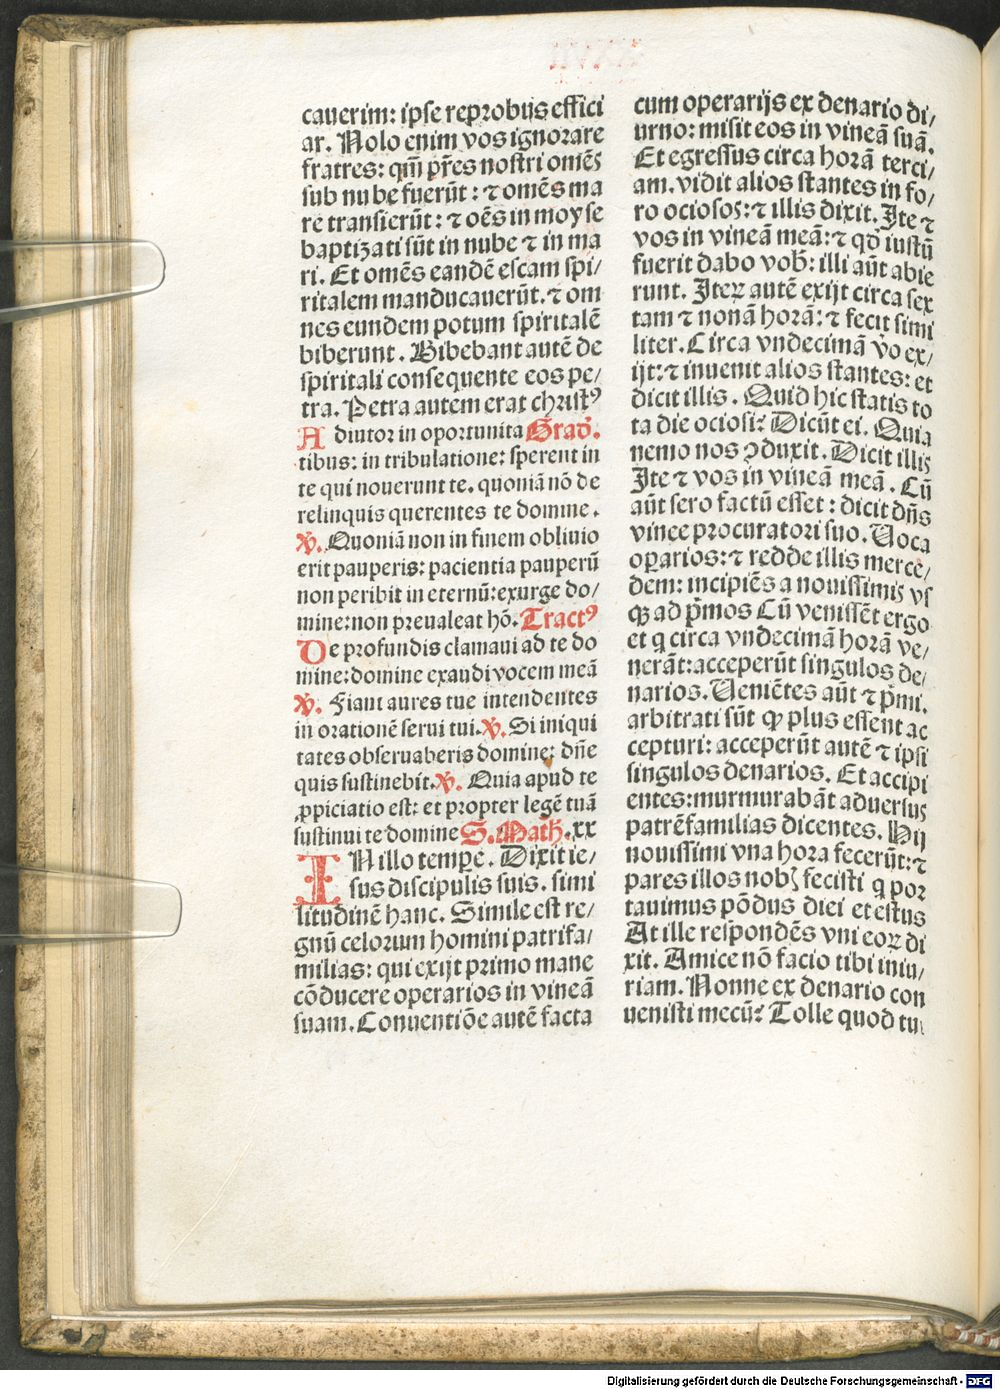 cauerim: ipse reprobus effici
ar. Nolo enim vos ignorare
fratres: qm̄ pr̄es nostri omēs
sub nube fuerūt: ⁊ omēs ma
re transierūt: ⁊ oēs in moyse
baptizati sūt in nube ⁊ in ma
ri. Et omēs eandē escam spi/
ritalem manducauerūt. ⁊ om
nes eundem potum spiritalē
biberunt. Bibebant autē de
spiritali consequente eos pe/
tra. Petra autem erat christꝰ
Adiutor in oportunita Grad̄.
tibus: in tribulatione: sperent in
te qui nouerunt te. quoniā nō de
relinquis querentes te domine.
℣. Quoniā non in finem obliuio
erit pauperis: pacientia pauperū
non peribit in eternū: exurge do/
mine: non preualeat hō. Tractꝰ
De profundis clamaui ad te do
mine: domine exaudi vocem meā
℣. Fiant aures tue intendentes
in orationē serui tui. ℣. Si iniqui
tates obseruaberis domine: dn̄e
quis sustinebit. ℣. Quia apud te
ꝓpiciatio est: et propter legē tuā
sustinui te domine S. Math. xx
IN illo tempe. Dixit ie/
sus discipulis suis. simi
litudinē hanc. Simile est re/
gnū celorum homini patrifa/
milias: qui exijt primo mane
cōducere operarios in vineā
suam. Conuentiōe autē facta
cum operarijs ex denario di/
urno: misit eos in vineā suā.
Et egressus circa horā terci/
am. vidit alios stantes in fo/
ro ociosos: ⁊ illis dixit. Ite ⁊
vos in vineā meā: ⁊ qd̄ iustū
fuerit dabo vob̄: illi aūt abie
runt. Iteꝝ autē exijt circa sex
tam ⁊ nonā horā: ⁊ fecit simi
liter. Circa vndecimā v̄o ex/
ijt: ⁊ inuenit alios stantes: et
dicit illis. Quid hic statis to
ta die ociosi? Dicūt ei. Quia
nemo nos ꝯduxit. Dicit illis
Ite ⁊ vos in vineā meā. Cū
aūt sero factū esset: dicit dn̄s
vinee procuratori suo. Uoca
oꝑarios: ⁊ redde illis merce/
dem: incipiēs a nouissimis vs
qꝫ ad p̄mos Cū venissēt ergo
et q circa vndecimā horā ve/
nerāt: acceperūt singulos de/
narios. Ueniētes aūt ⁊ p̄mi.
arbitrati sūt qꝫ plus essent ac
cepturi: acceperūt autē ⁊ ipsi
singulos denarios. Et accipi
entes: murmurabāt aduersus
patrēfamilias dicentes. Hij
nouissimi vna hora fecerūt: ⁊
pares illos nobꝫ fecisti q por
tauimus pōdus diei et estus
At ille respondēs vni eoꝝ di
xit. Amice nō facio tibi iniu/
riam. Nonne ex denario con
uenisti mecū? Tolle quod tu
Digitalisierung gefördert durch die Deutsche Forschungsgemeinschaft - DFG